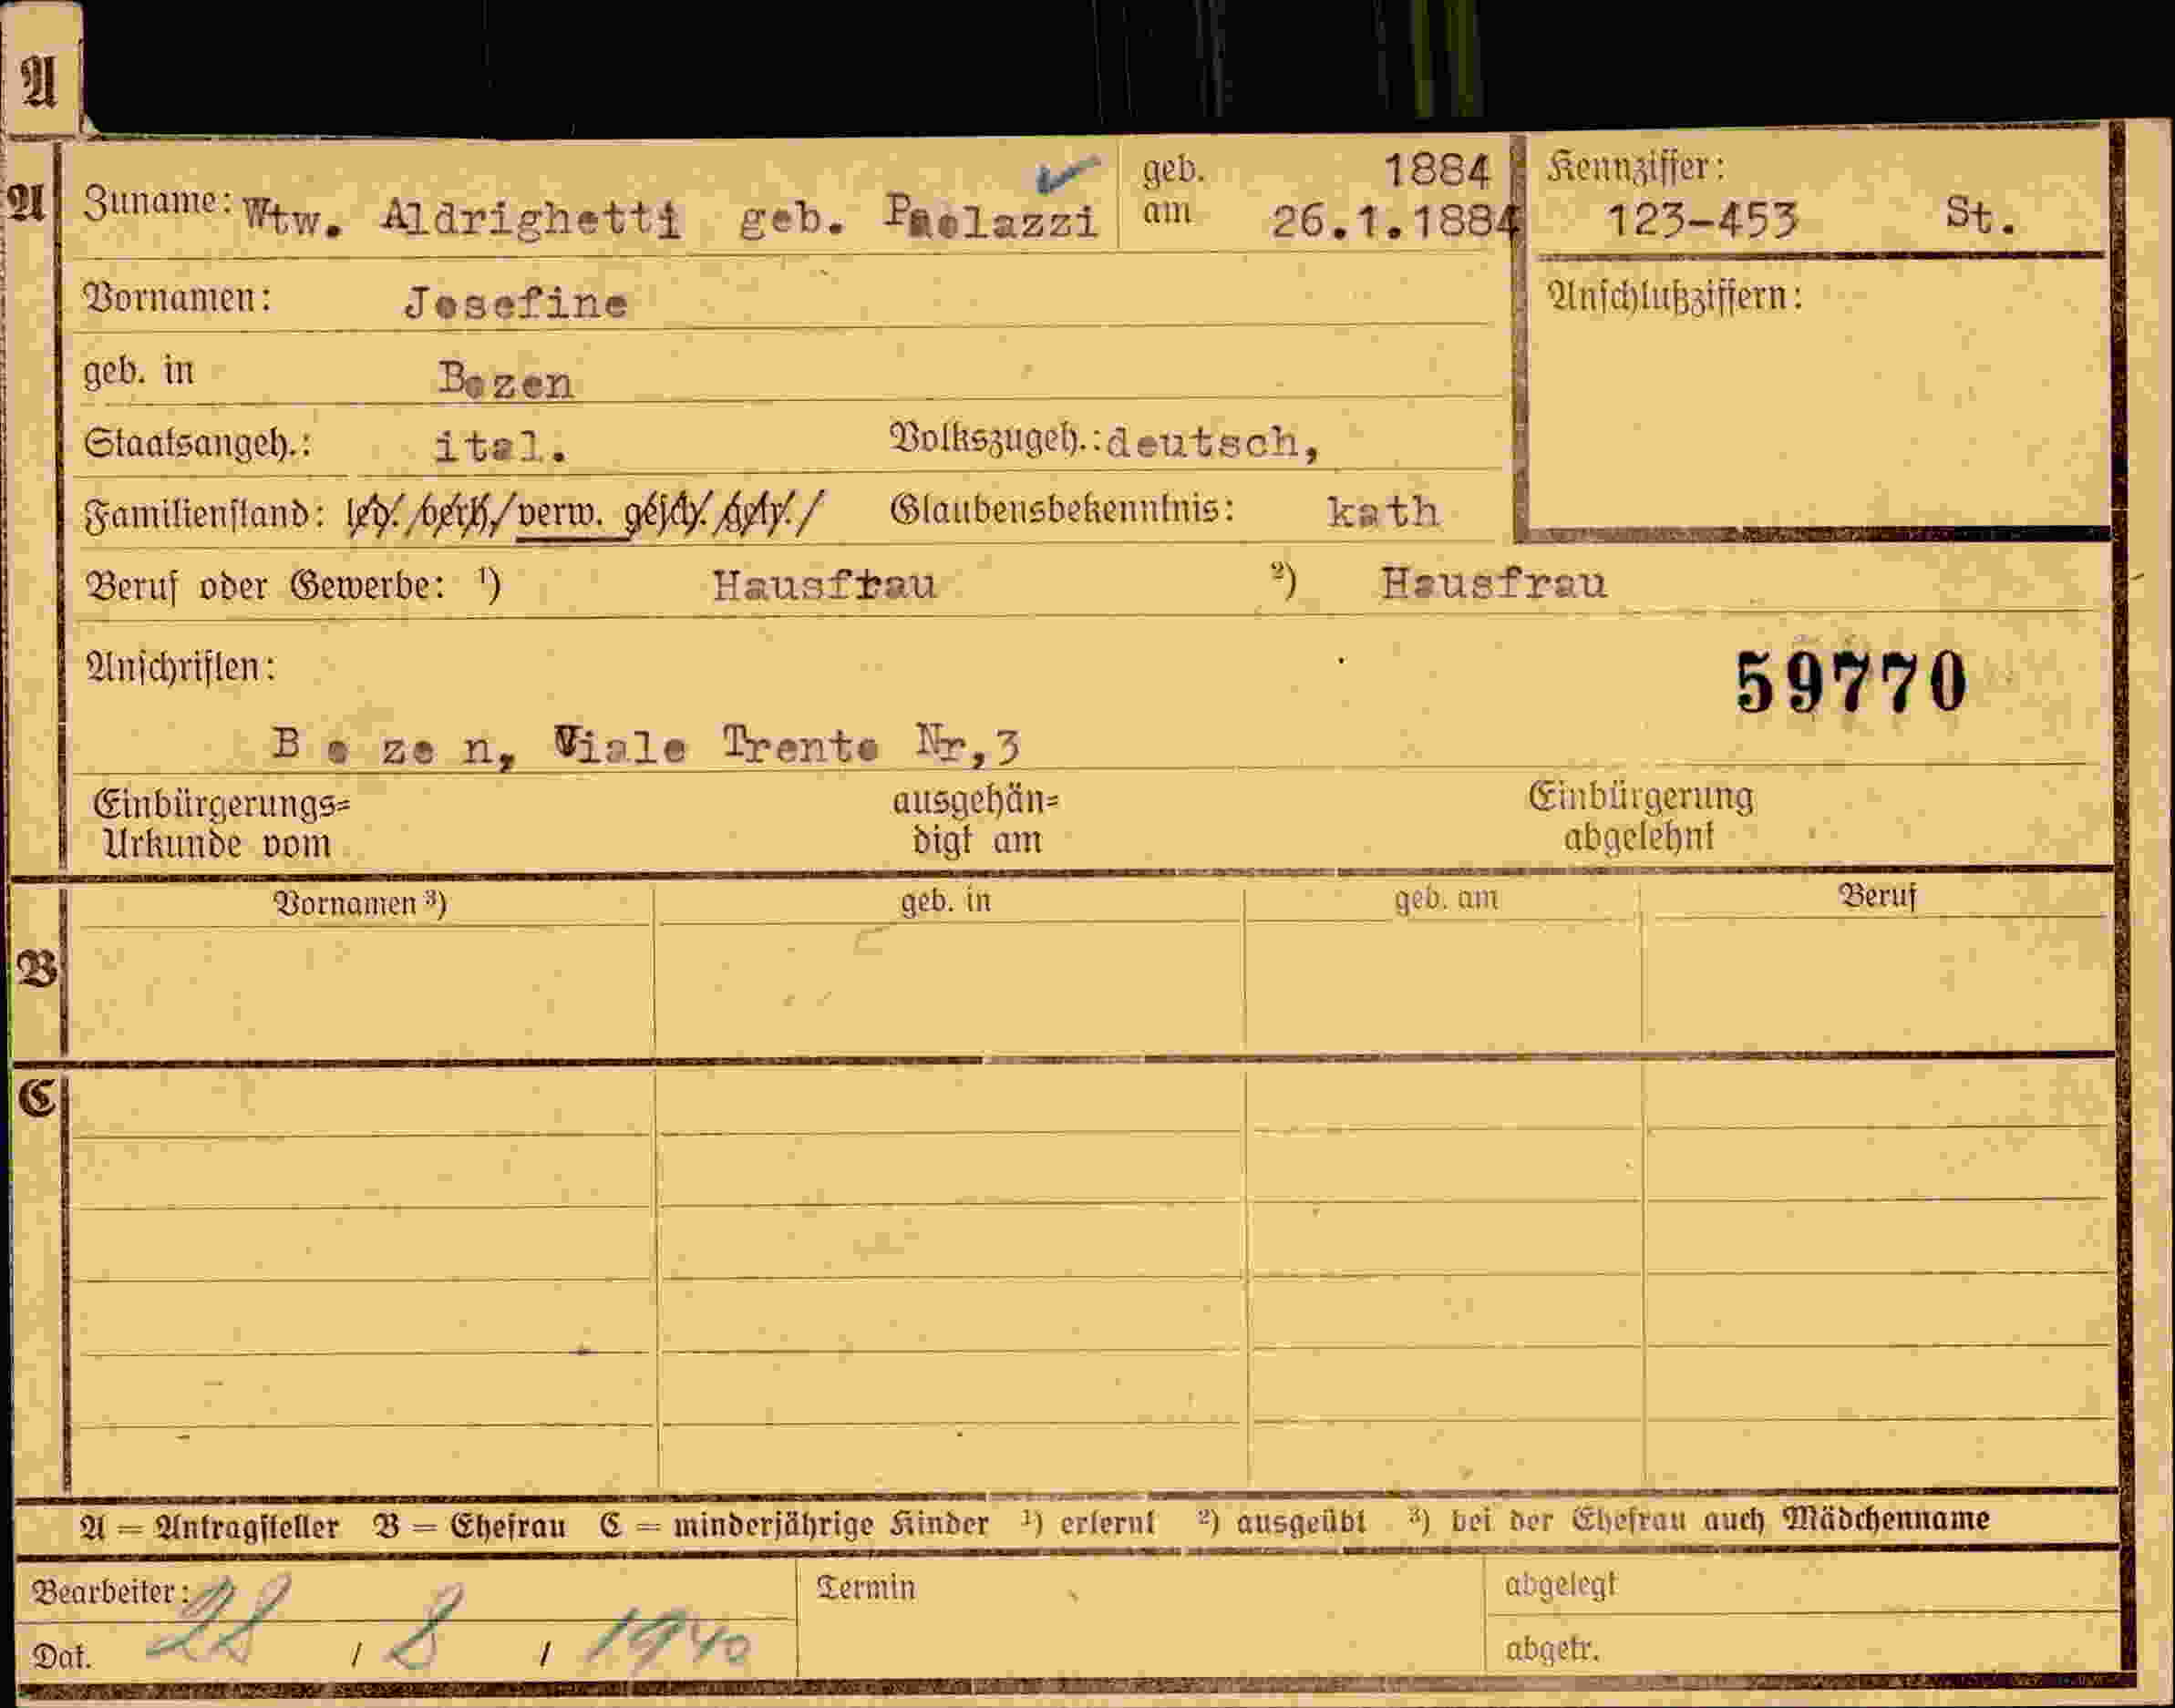 A
A
Zuname: Wtw. Aldrighetti geb. Paolazzi
geb. am 1884 26.1.1884
Kennziffer:
123-453 St.
Vornamen: Josefine
Anschlußziffern:
geb. in Bozen
Staatsangeh.: ital. Volkszugeh.: deutsch,
Familienstand: led./verh./verw. gesch./getr./ Glaubensbekenntnis: kath
Beruf oder Gewerbe: ¹) Hausftau ²) Hausfrau
Anschriften:
59770
B o ze n, Viale Trento Nr,3
Einbürgerungs= ausgehän= Einbürgerung
Urkunde vom digt am abgelehnt
Vornamen ³) geb. in geb. am Beruf
B
C
A = Antragsteller B = Ehefrau C = minderjährige Kinder ¹) erlernt ²) ausgeübt ³) bei der Ehefrau auch Mädchenname
Bearbeiter: Termin abgelegt
Dat. 28 / 8 / 1940 abgetr.